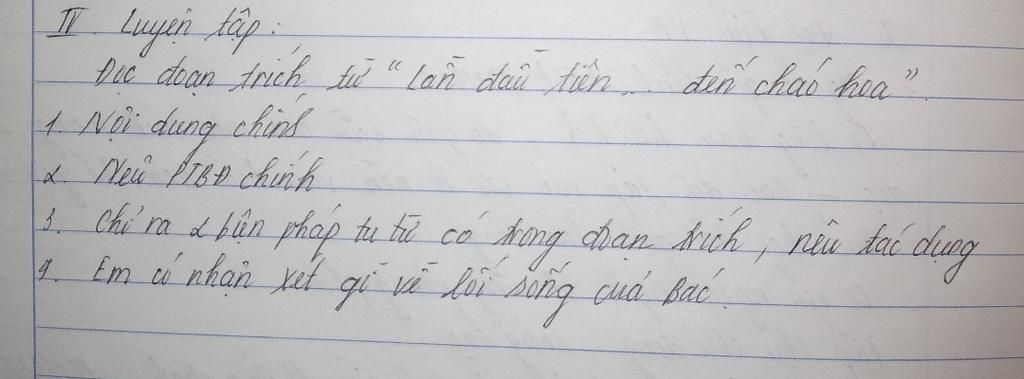 IV. Luyện tập:
Đọc đoạn trích từ "Lần đầu tiên... đến cháo hoa".
1. Nội dung chính
2. Nêu PTBĐ chính
3. Chỉ ra 2 biện pháp tu từ có trong đoạn trích, nêu tác dụng
4. Em có nhận xét gì về lối sống của Bác.